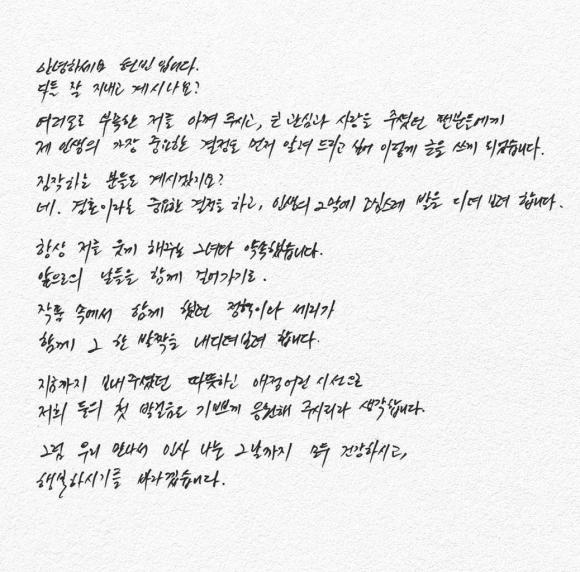 안녕하세요 현빈 입니다.
다들 잘 지내고 계시나요?
여러모로 부족한 저를 아껴 주시고, 큰 관심과 사랑을 주셨던 팬분들에게
제 인생의 가장 중요한 결정을 먼저 알려 드리고 싶어 이렇게 글을 쓰게 되었습니다.
짐작하는 분들도 계시겠지요?
네. 결혼이라는 중요한 결정을 하고, 인생의 2막에 조심스레 발을 디뎌 보려 합니다.
항상 저를 웃게 해주는 그녀와 약속했습니다.
앞으로의 날들을 함께 걸어가기로.
작품 속에서 함께 했던 정혁이와 세리가
함께 그 한 발짝을 내디뎌보려 합니다.
지금까지 보내주셨던 따뜻하신 애정어린 시선으로
저희 둘의 첫 발걸음도 기쁘게 응원해 주시리라 생각합니다.
그럼 우리 만나서 인사 나눌 그날까지 모두 건강하시고,
행복하시기를 바라겠습니다.